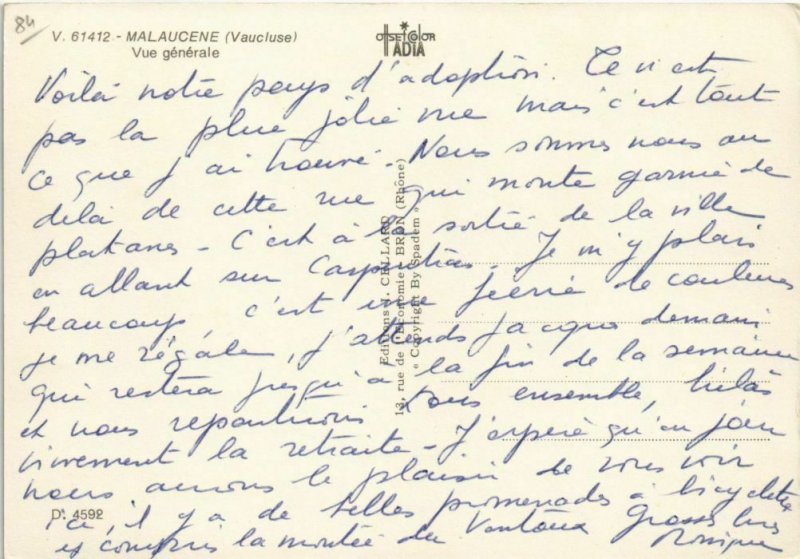 84
V. 61412 - MALAUCENE (Vaucluse)
Vue générale
OFFSET COLOR
ADIA
Voilà notre pays d'adoption. Ce n'est
pas la plus jolie vue mais c'est tout
ce que j'ai trouvé. Nous sommes nous au
delà de cette rue qui monte garnie de
platanes - C'est à la sortie de la ville
en allant sur Carpentras. Je m'y plais
beaucoup, c'est une féerie de couleurs
je me régale, j'attends Jacques demain
qui restera jusqu'à la fin de la semaine
et nous repartirons tous ensemble, hélas
vivement la retraite - J'espère qu'un jour
nous aurons le plaisir de vous voir
ici, il y a de belles promenades à bicyclette
y compris la montée du Ventoux Grosses bises
Monique
Editions J. CELLARD
13, rue de l'Economie - BRON (Rhône)
« Copyright By Spadem »
D. 4592